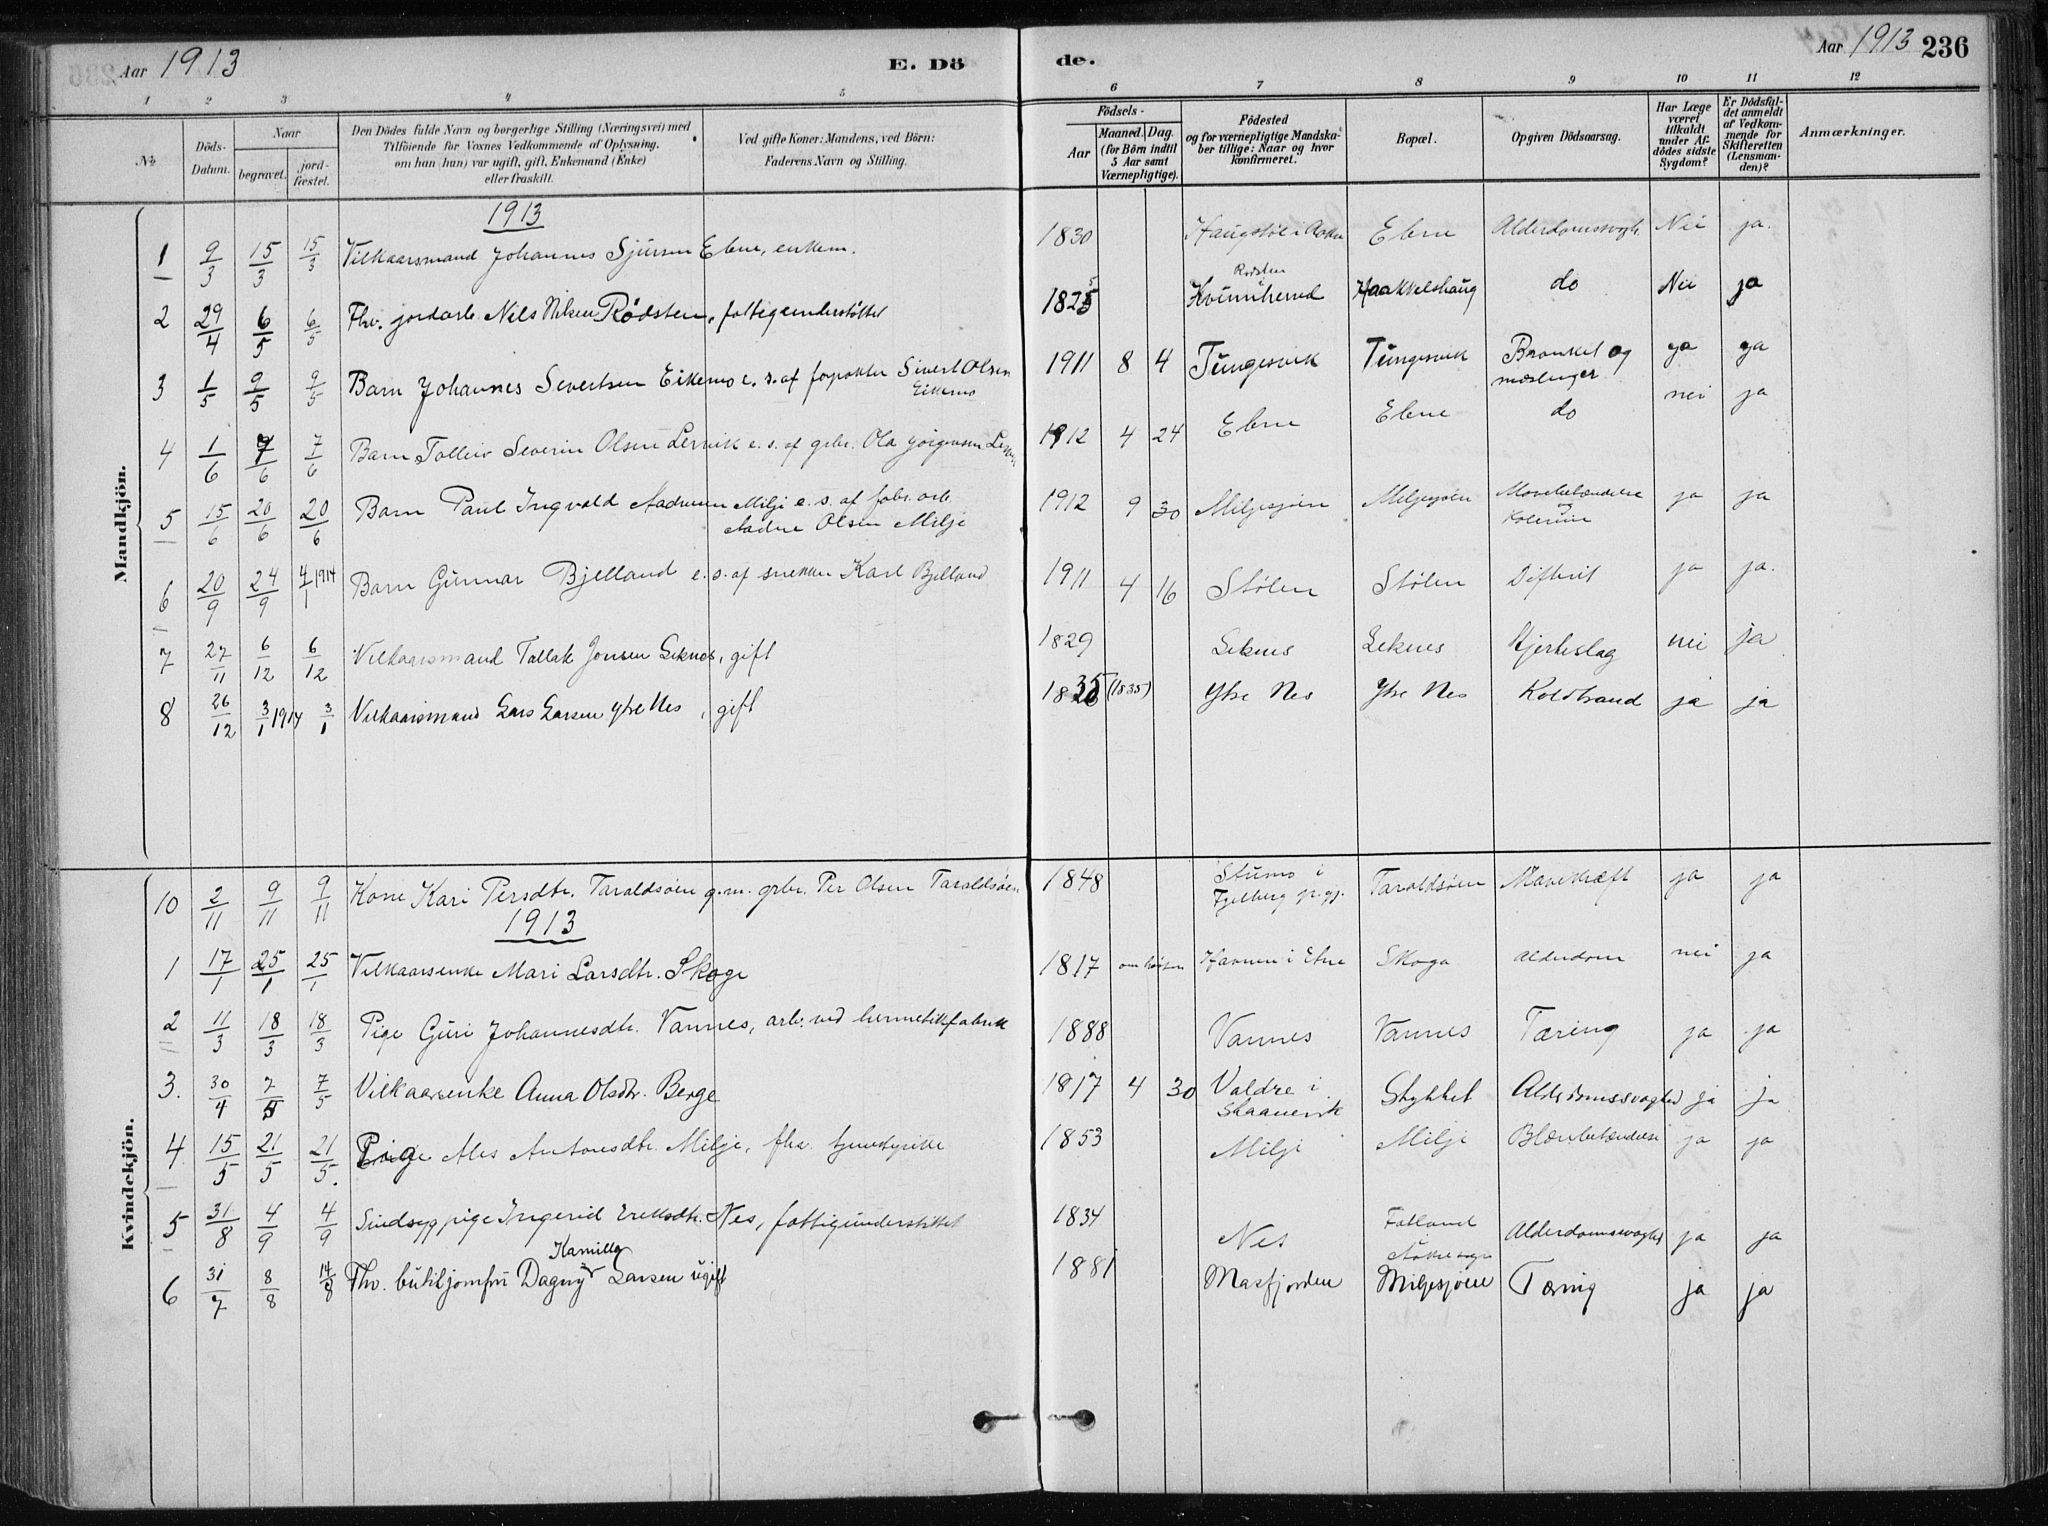 Aar 1913
E. Dö
de.
Aar 1913 236
1 2 3 4 5 6 7 8 9 10 11 12
No
Döds-Datum.
Naar
begravet. jord-fæstet.
Den Dödes fulde Navn og borgerlige Stilling (Næringsvei) med
Tilföiende for Voxnes Vedkommende af Oplysning,
om han (hun) var ugift, gift, Enkemand (Enke)
eller fraskilt.
Ved gifte Koner: Mandens, ved Börn:
Faderens Navn og Stilling.
Födsels-
Aar
Maaned. Dag.
(for Börn indtil
5 Aar samt
Værnepligtige).
Födested
og for værnepligtige Mandska-
ber tillige: Naar og hvor
konfirmeret.
Bopæl.
Opgiven Dödsaarsag.
Har Læge
været
tilkaldt
under Af-
dödes sidste
Sygdom?
Er Dödsfal-
det anmeldt
af Vedkom-
mende for
Skifteretten
(Lensman-
den)?
Anmærkninger.
Mandkjön.
1913
1 9/3 15/3 15/3 Vilkaarsmand Johannes Sjursen Ebne, enkem. 1830 Ebne Alderdomssvagh. Nei ja.
2 29/4 6/5 6/5 Fhv. jordarb. Nils Nilsen Rødsten, fattigunderstøttet 1825 5 Rødsten Kvinnherred Haakkelshaug do Nei ja
3 1/5 9/5 9/5 Barn Johannes Severtsen Eikemo e. s. af forpakter Sivert Olsen Eikemo 1911 8 4 Tungesvik Tungesvik Bronkit og mæslinger ja ja
4 1/6 7/6 7/6 Barn Tolleiv Severin Olsen Lervik e. s. af grbr. Ola Jørgensen 1912 4 24 Ebne Ebne do nei ja
5 15/6 20/6 20/6 Barn Paul Ingvald Aadnesen Milje e. s. af fabr. arb. Aadne Olsen Milje 1912 9 30 Miljesjøen Miljesjøen Mavebetændelse ja ja
6 20/9 24/9 4/1 1914 Barn Gunnar Bjelland e. s. af snekker Karl Bjelland 1911 4 16 Stølen Stølen Difterit ja ja.
7 27/11 6/12 6/12 Vilkaarsmand Tallak Jonsen Leknes, gift 1829 Leknes Leknes Hjerteslag nei ja
8 26/12 3/1 1914 3/1 Vilkaarsmand Lars Larsen Ytre Nes, gift 1835 (1835) Ytre Nes Ytre Nes Koldbrand ja ja
Kvindekjön.
10 2/11 9/11 9/11 Kone Kari Persdtr. Taraldsøien g. m. grbr. Per Olsen Taraldsøien 1848 Stumo i Fjelberg pr.gj. Taraldsøien Mavekræft ja ja
1913
1 17/1 25/1 25/1 Vilkaarsenke Mari Larsdtr. Skoge 1817 om høsten Havnen i Etne Skoga Alderdom nei ja
2 11/3 18/3 18/3 Pige Guri Johannesdtr. Vannes, arb. ved hermetikfabrik 1888 Vannes Vannes Tæring ja ja
3. 30/4 7/5 7/5 Vilkaarsenke Anna Olsdtr. Berge 1817 4 30 Valdre i Skaanevik Stykket Alderdomssvaghed ja ja
4 15/5 21/5 21/5. Pige Ales Antonsdtr. Milje, fhv. tjenestepike 1853 Milje Milje ja ja
5 31/8 4/9 4/9 Sindsyg pige Ingerid Eriksdtr. Nes, fattigunderstøttet 1834 Nes Alderdomssvaghed ja ja
6 31/7 8/8 14/8 Fhv. butikjomfru Dagny Kamilla Larsen ugift 1881 Masfjorden Miljesjøen Tæring ja ja